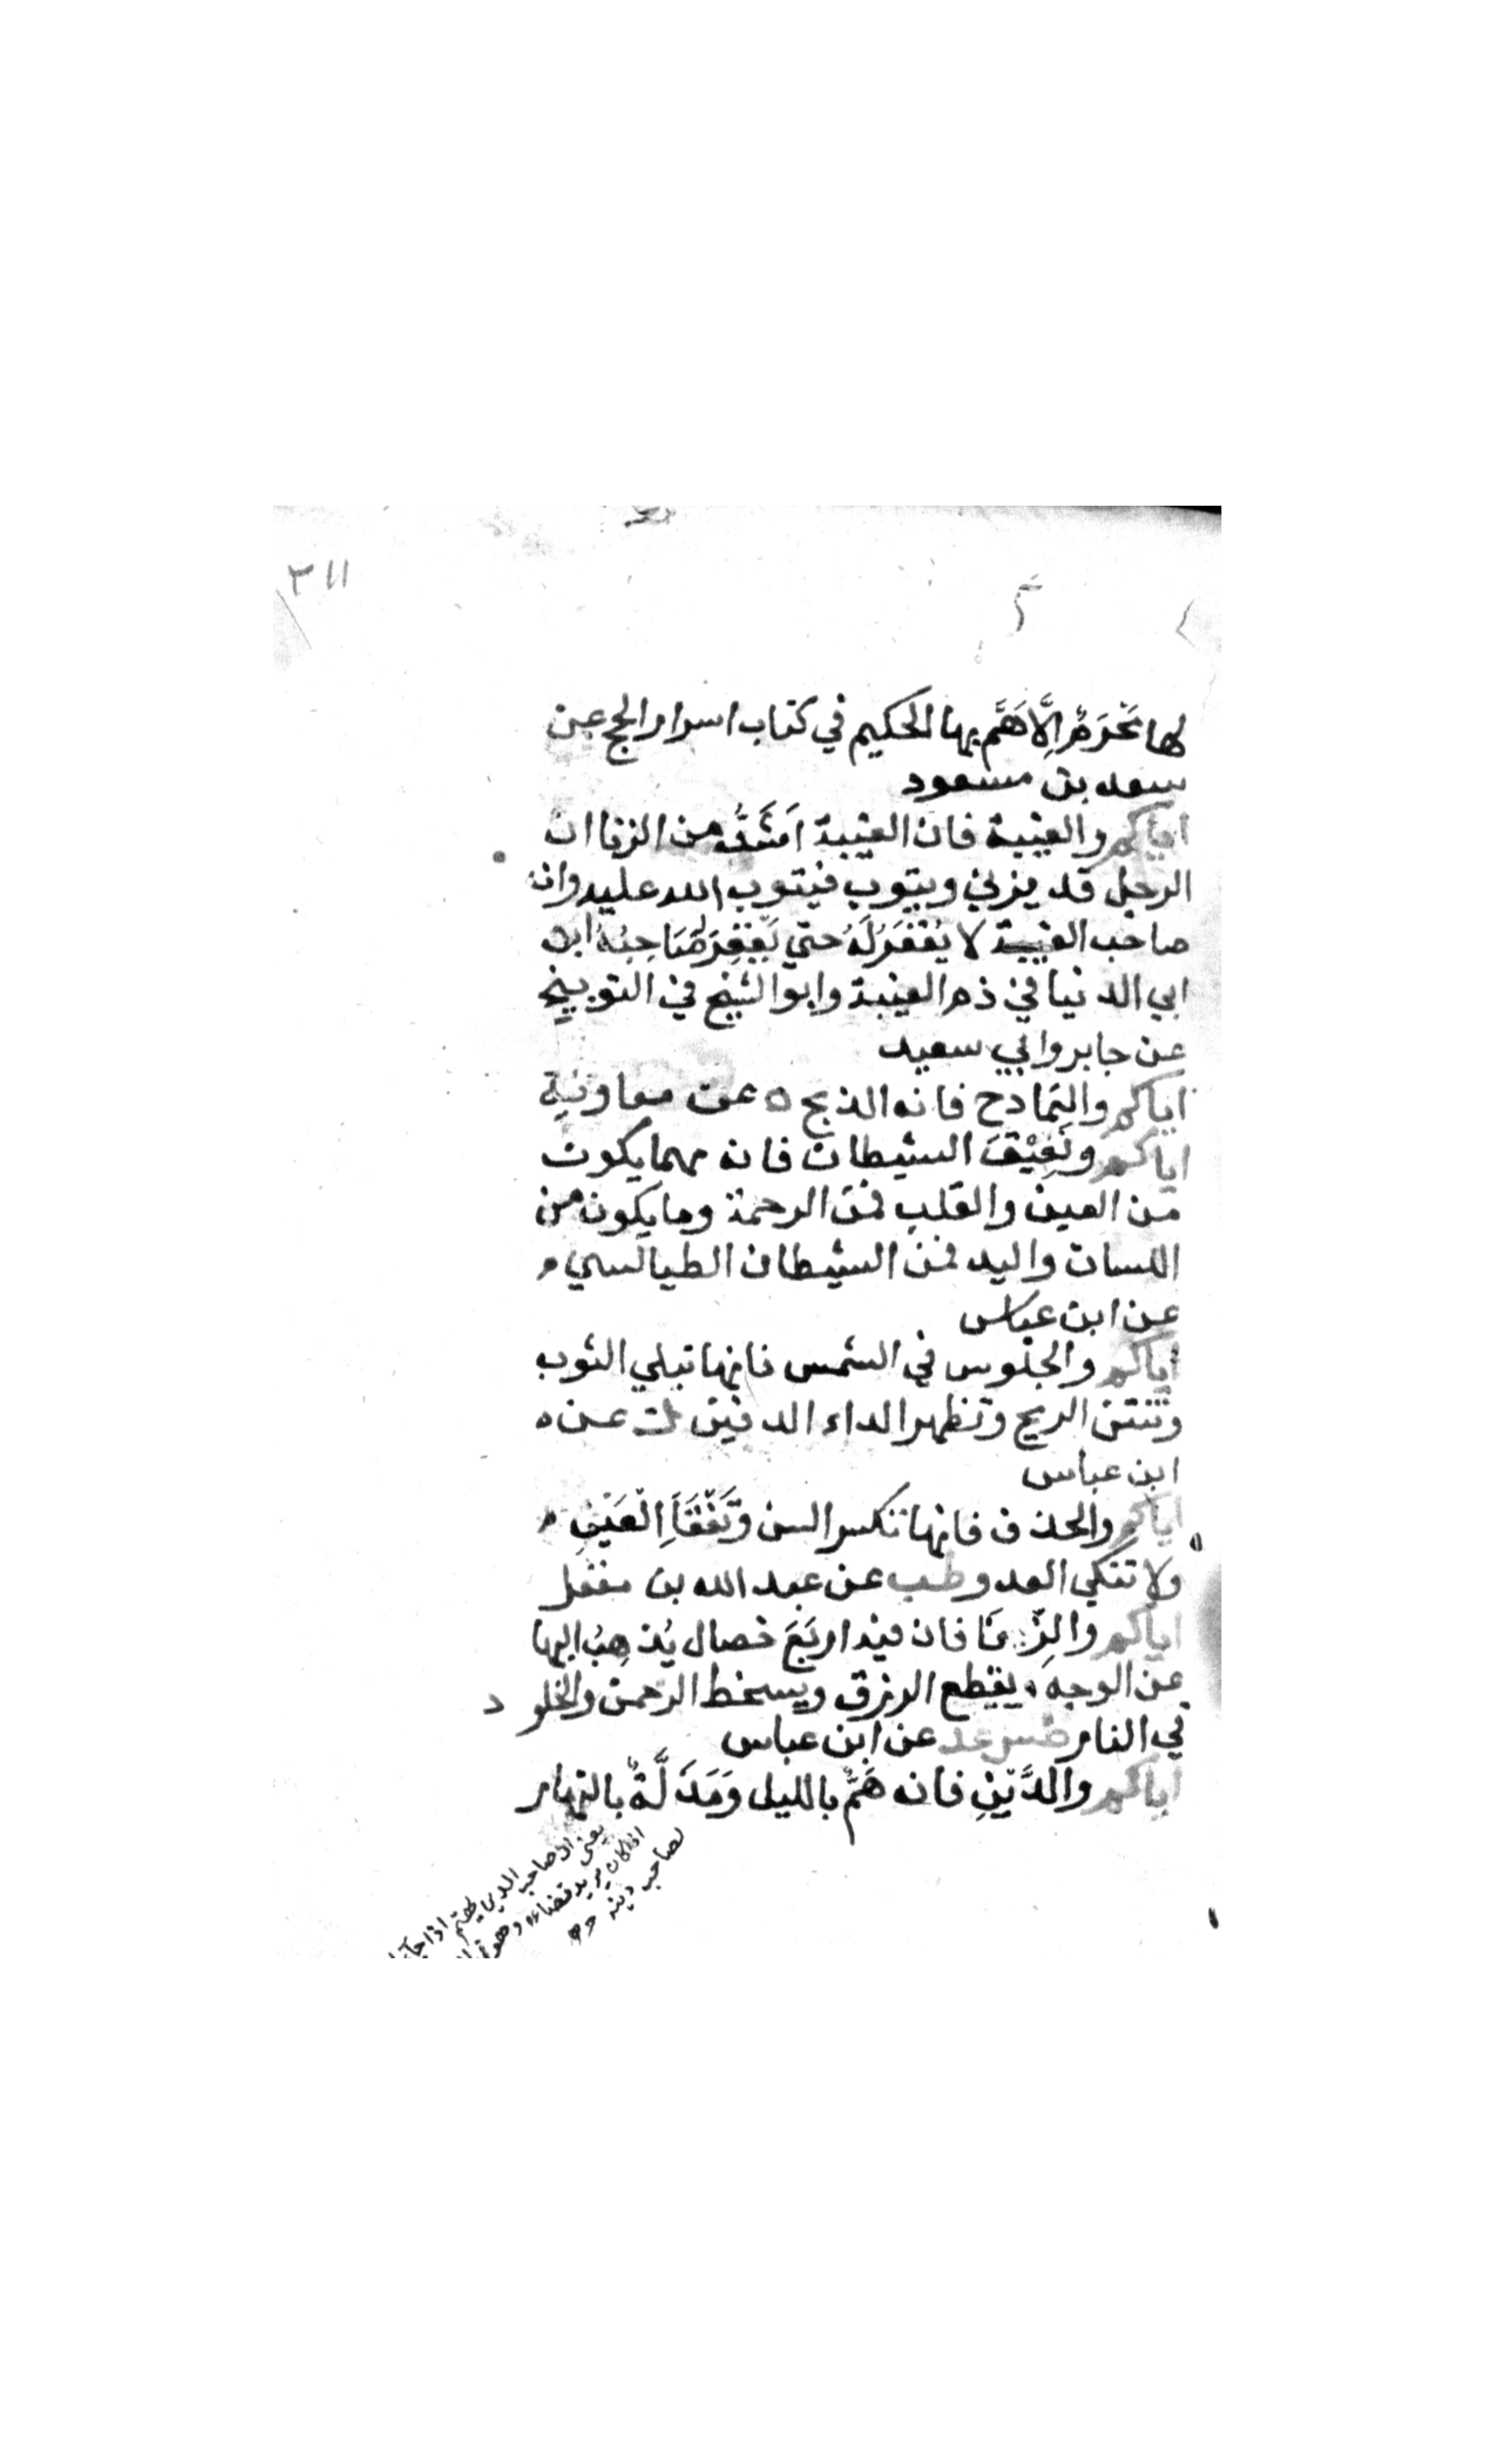 ٣١١
لها مَحْرَمٌ اِلَّا هَمَّ بها الحكيم في كتاب اسرار الحج عن
سعد بن مسعود
اياكم والغيبة فان الغيبة اَشَدُّ من الزنا ان
الرجل قد يزني ويتوب فيتوب الله عليه وان
صاحب الغيبة لا يُغْفَرُ لَهُ حتي يَغْفِرَ له صَاحِبُهُ ابن
ابي الدنيا في ذم الغيبة وابو الشيخ في التوبيخ
عن جابر وابي سعيد
اياكم والتمادح فانه الذبح ه عن معاوية
اياكم ونَعِيْقَ الشيطان فانه مهما يكون
من العين والقلب فمن الرحمة وما يكون من
اللسان واليد فمن الشيطان الطيالسي
عن ابن عباس
اياكم والجلوس في الشمس فانها تبلي الثوب
وتنتن الريح وتظهر الداء الدفين ك عن
ابن عباس
اياكم والخذف فانها تكسر السن وَتَفْقَأُ الْعَيْنَ
ولا تنكي العدو طب عن عبد الله بن مغفل
اياكم والزِّنَا فان فيه اربَعَ خصال يُذهِبُ البها
عن الوجه ويقطع الرزق ويسخط الرحمن والخلود
في النار طس عد عن ابن عباس
اياكم والدَّيْنِ فانه هَمٌّ بالليل وَمَذَلَّةٌ بالنهار
يعنى ان صاحب الدين يهتم اذا جاء
اذا كان يريد قضاءه وهو
لصاحب دينه